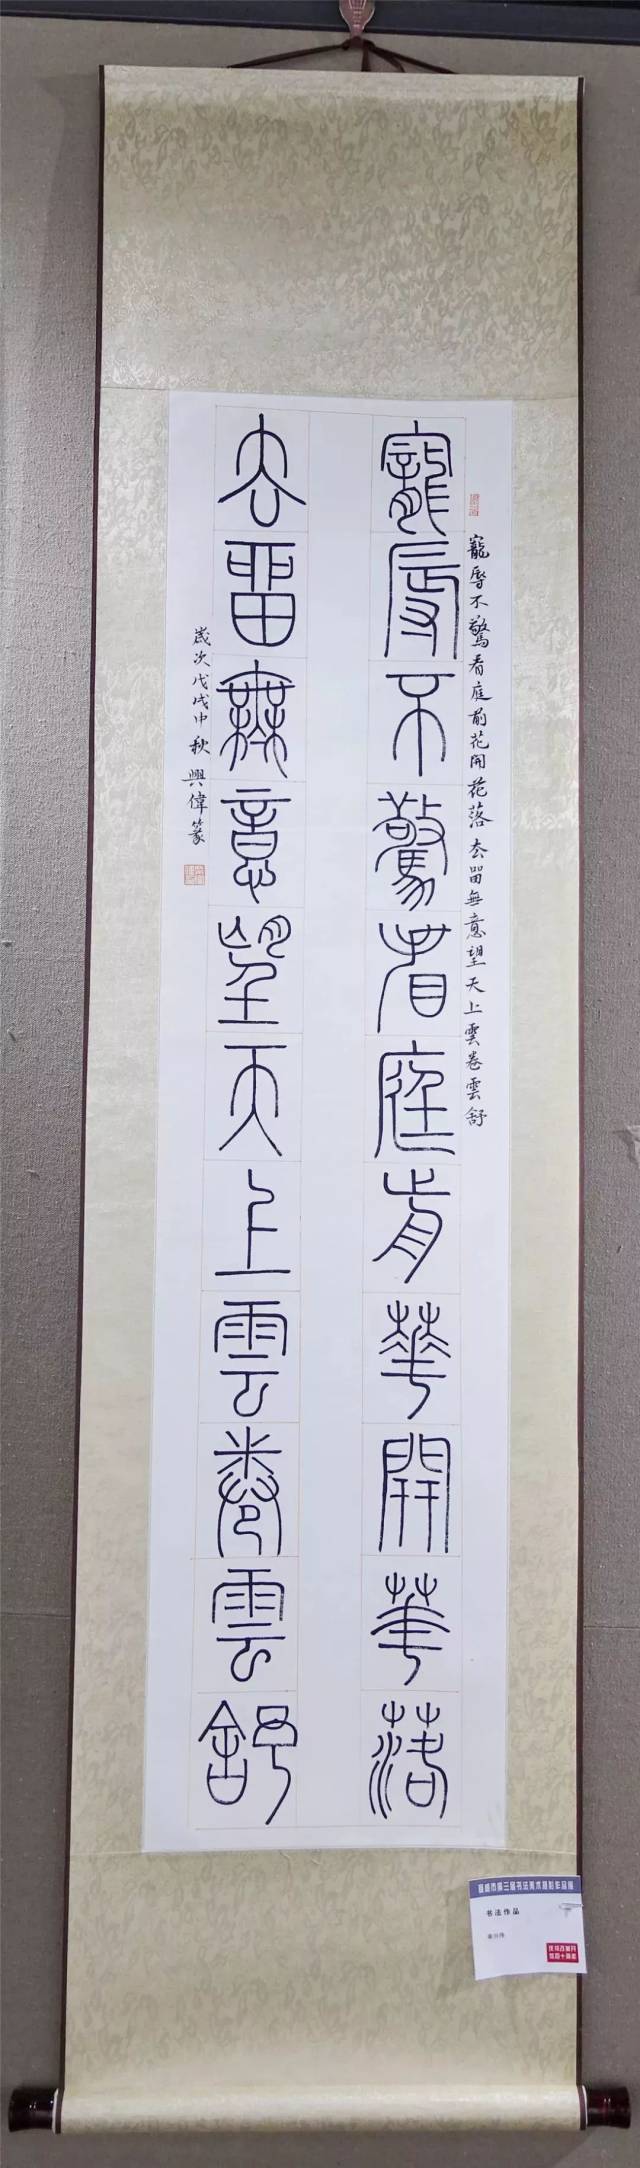 寵辱不驚看庭前華開華落
去留無意望天上雲卷雲舒
寵辱不驚看庭前花開花落去留無意望天上雲卷雲舒
歲次戊戌中秋興偉篆
书法作品